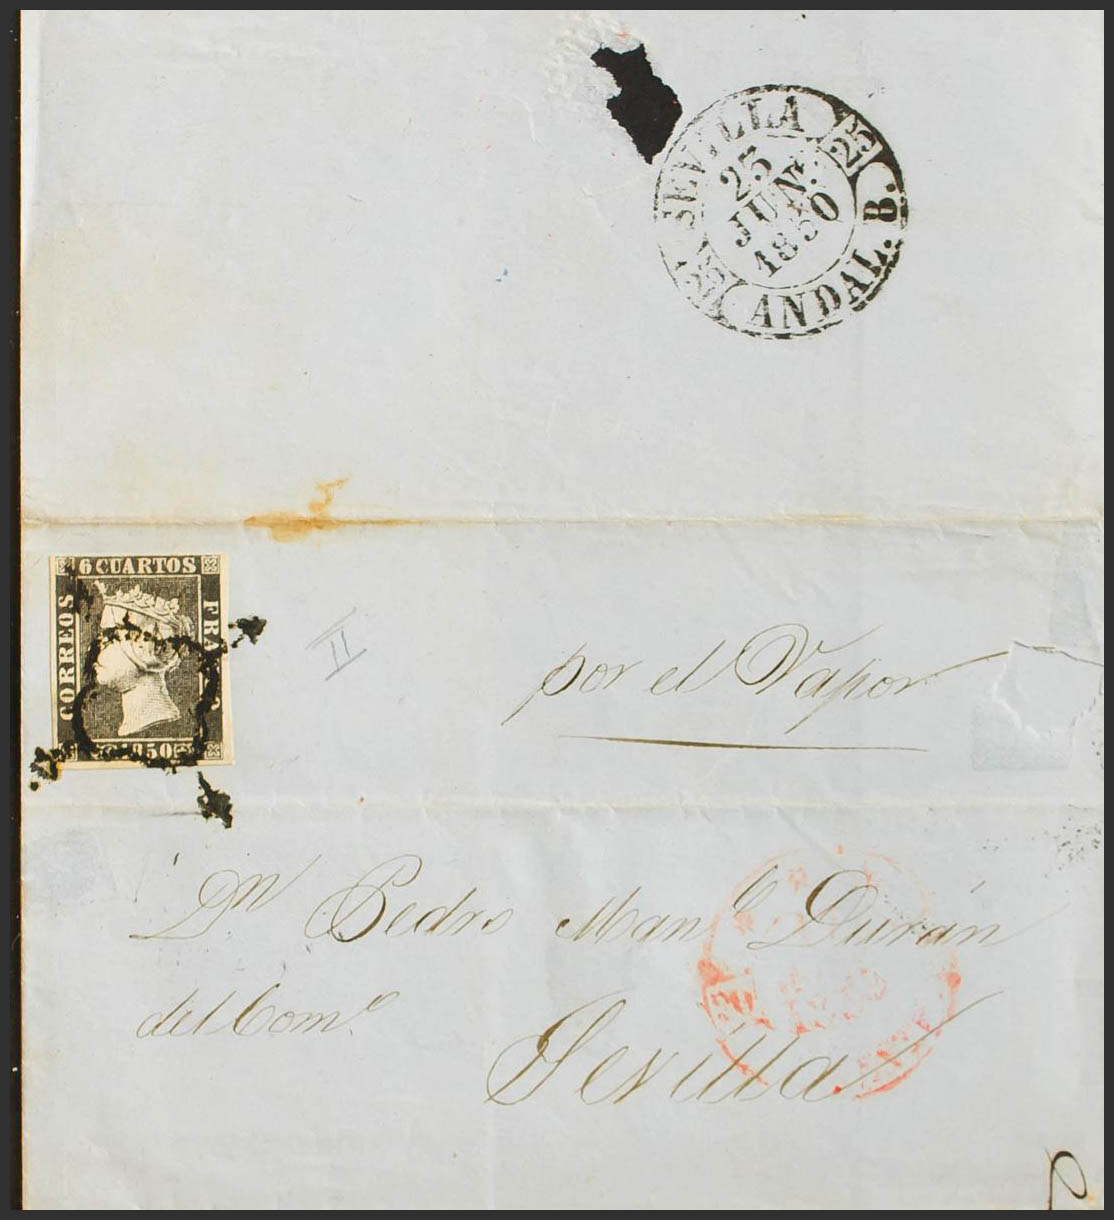 SEVILLA
25
25
JUN.
1850
ANDAL. B.
6 CUARTOS
CORREOS
FRA
1850
II
por el Vapor
Dn Pedro Manl Durán
del Como
Sevilla